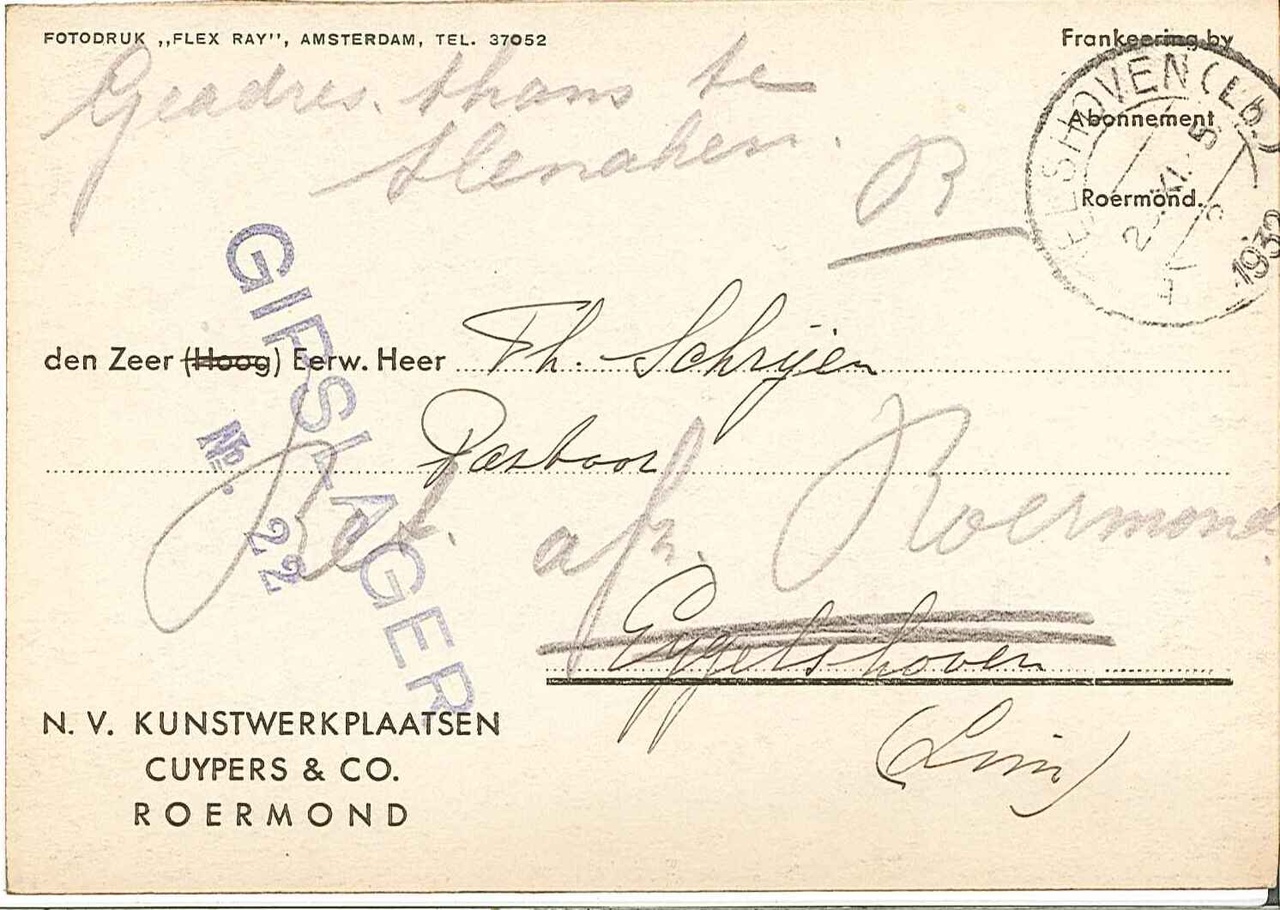 FOTODRUK „FLEX RAY”, AMSTERDAM, TEL. 37052
Frankeering by
Abonnement
Roermond.
Geadres. thans te
Slenaken.
R
EYGELSHOVEN (Lb.)
2 XI 5
193
GIPSLAGER
No. 22
den Zeer (Hoog) Eerw. Heer Th. Schrijen
Pastoor
Ret. afz. Roermond
Eygelshoven
(Lim)
N. V. KUNSTWERKPLAATSEN
CUYPERS & CO.
ROERMOND